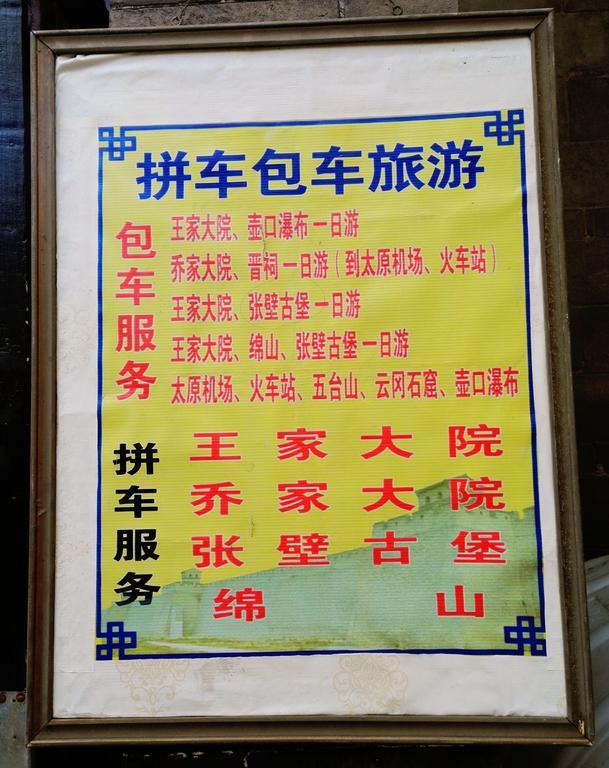 拼车包车旅游
包车服务
王家大院、壶口瀑布一日游
乔家大院、晋祠一日游（到太原机场、火车站）
王家大院、张壁古堡一日游
王家大院、绵山、张壁古堡一日游
太原机场、火车站、五台山、云冈石窟、壶口瀑布
拼车服务
王家大院
乔家大院
张壁古堡
绵山